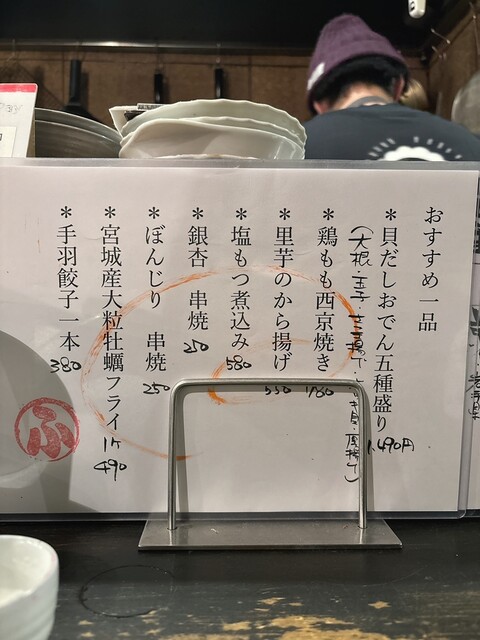 おすすめ一品
＊貝だしおでん五種盛り 1,490円
＊鶏もも西京焼き 1180
＊里芋のから揚げ 550
＊塩もつ煮込み 580
＊銀杏 串焼 250
＊ぼんじり 串焼 250
＊宮城産大粒牡蠣フライ 1ケ 490
＊手羽餃子一本 380
ふ